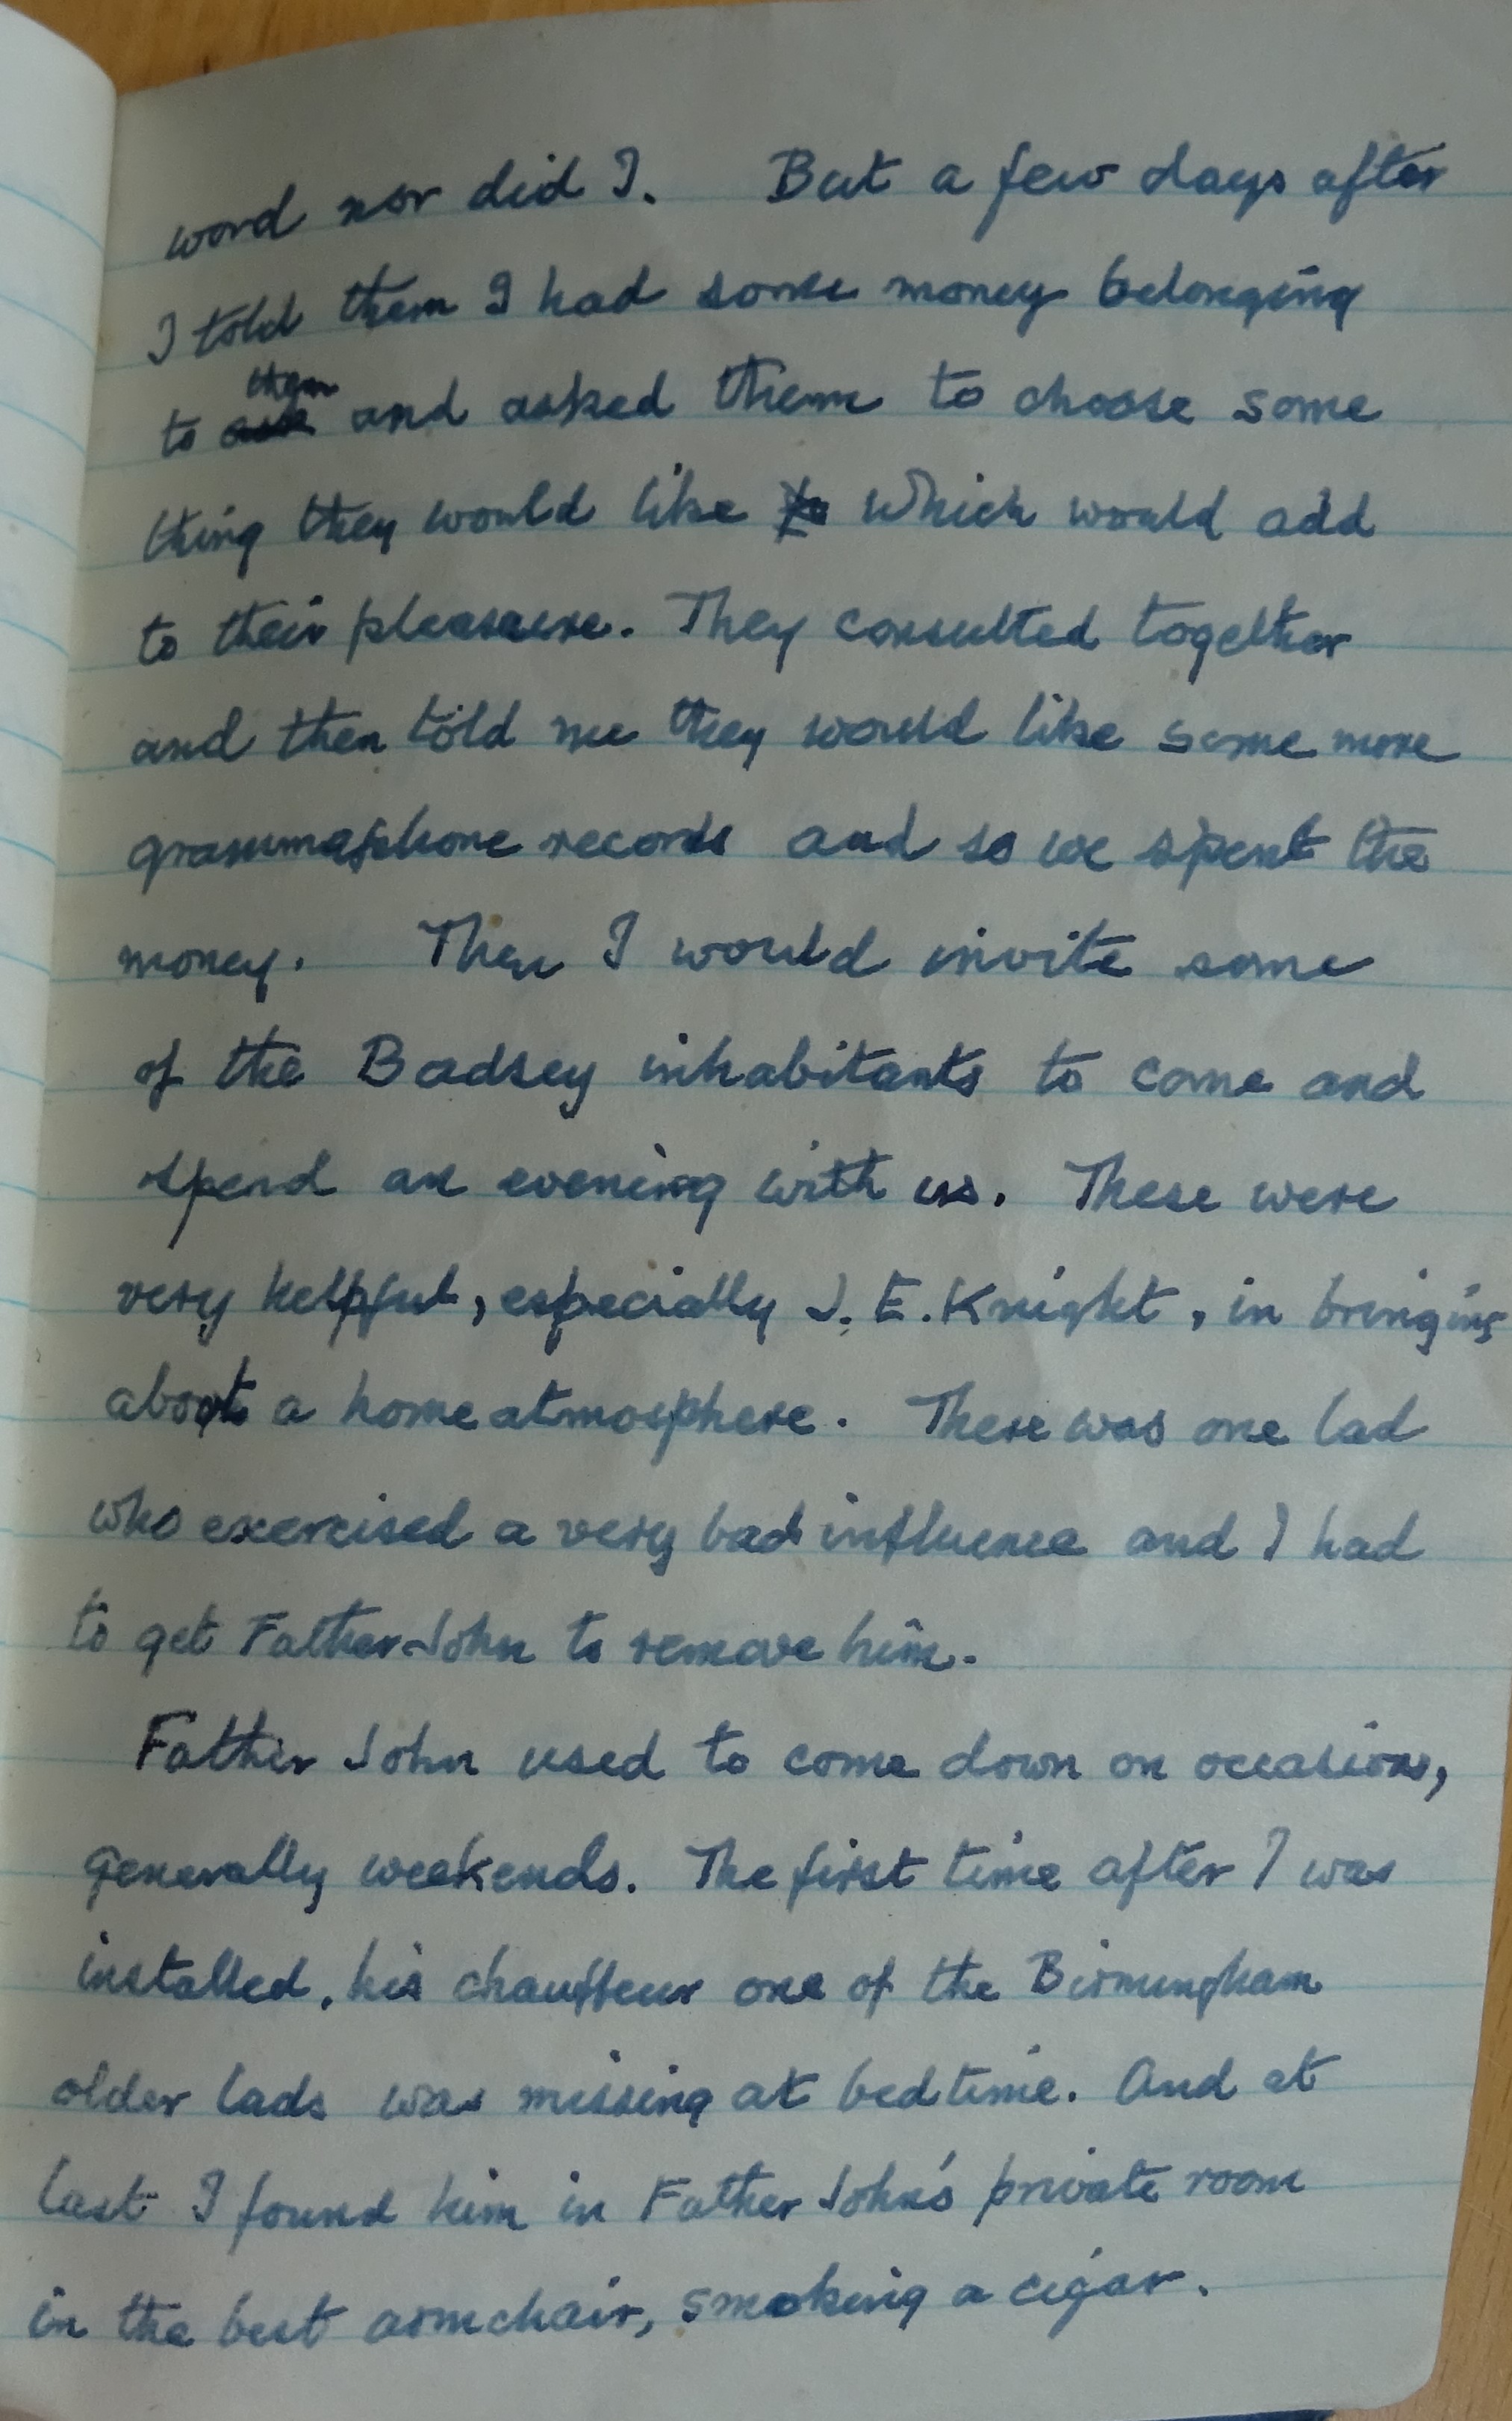 word nor did I. But a few days after
I told them I had some money belonging
them
to and asked them to choose some
thing they would like which would add
to their pleasure. They consulted together
and then told me they would like some more
grammaphone records and so we spent the
money. Then I would invite some
of the Badsey inhabitants to come and
spend an evening with us. These were
very helpful, especially J. E. Knight, in bringing
about a home atmosphere. There was one lad
who exercised a very bad influence and I had
to get Father John to remove him.
Father John used to come down on occasions,
generally weekends. The first time after I was
installed, his chauffeur one of the Birmingham
older lads was missing at bedtime. And at
last I found him in Father John's private room
in the best armchair, smoking a cigar.